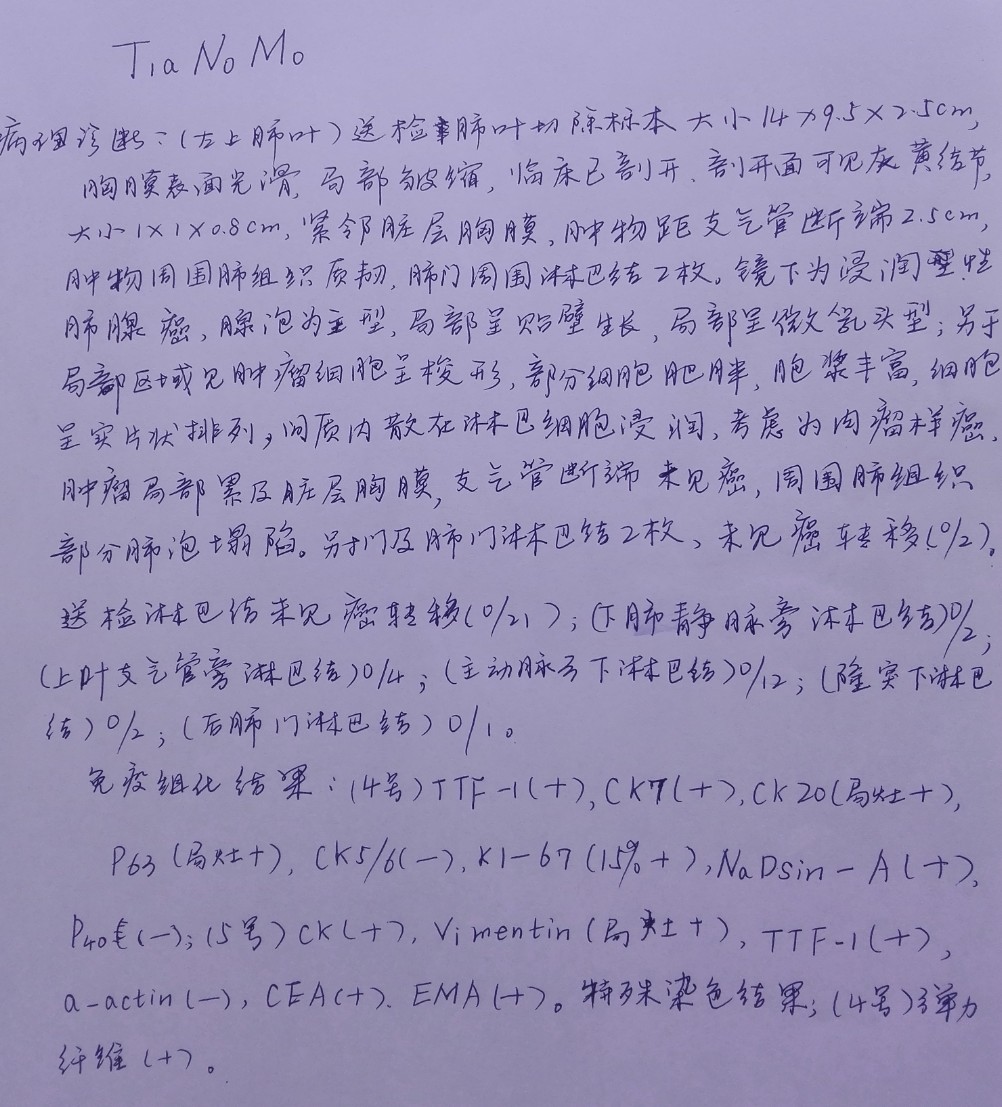 T1a N0 M0
病理诊断:(左上肺叶)送检肺叶切除标本大小14×9.5×2.5cm,
胸膜表面光滑,局部皱缩,临床已剖开、剖开面可见灰黄结节,
大小1×1×0.8cm,紧邻脏层胸膜,肿物距支气管断端2.5cm,
肿物周围肺组织质韧,肺门周围淋巴结2枚。镜下为浸润型性
肺腺癌,腺泡为主型,局部呈贴壁生长,局部呈微乳头型;另于
局部区域见肿瘤细胞呈梭形,部分细胞肥胖,胞浆丰富,细胞
呈实片状排列,间质内散在淋巴细胞浸润,考虑为肉瘤样癌,
肿瘤局部累及脏层胸膜,支气管断端未见癌,周围肺组织
部分肺泡塌陷。另打及肺门淋巴结2枚、未见癌转移(0/2)。
送检淋巴结未见癌转移(0/21);(下肺静脉旁淋巴结)0/2;
(上叶支气管旁淋巴结)0/4;(主动脉弓下淋巴结)0/12;(隆突下淋巴
结)0/2;(后肺门淋巴结)0/1。
免疫组化结果:(4号)TTF-1(+),CK7(+),CK20(局灶+),
P63(局灶+),CK5/6(-),K1-67(15%+),NaDsin-A(+),
P40(-);(5号)CK(+),Vimentin(局灶+),TTF-1(+),
a-actin(-),CEA(+).EMA(+)。特殊染色结果;(4号)弹力
纤维(+)。